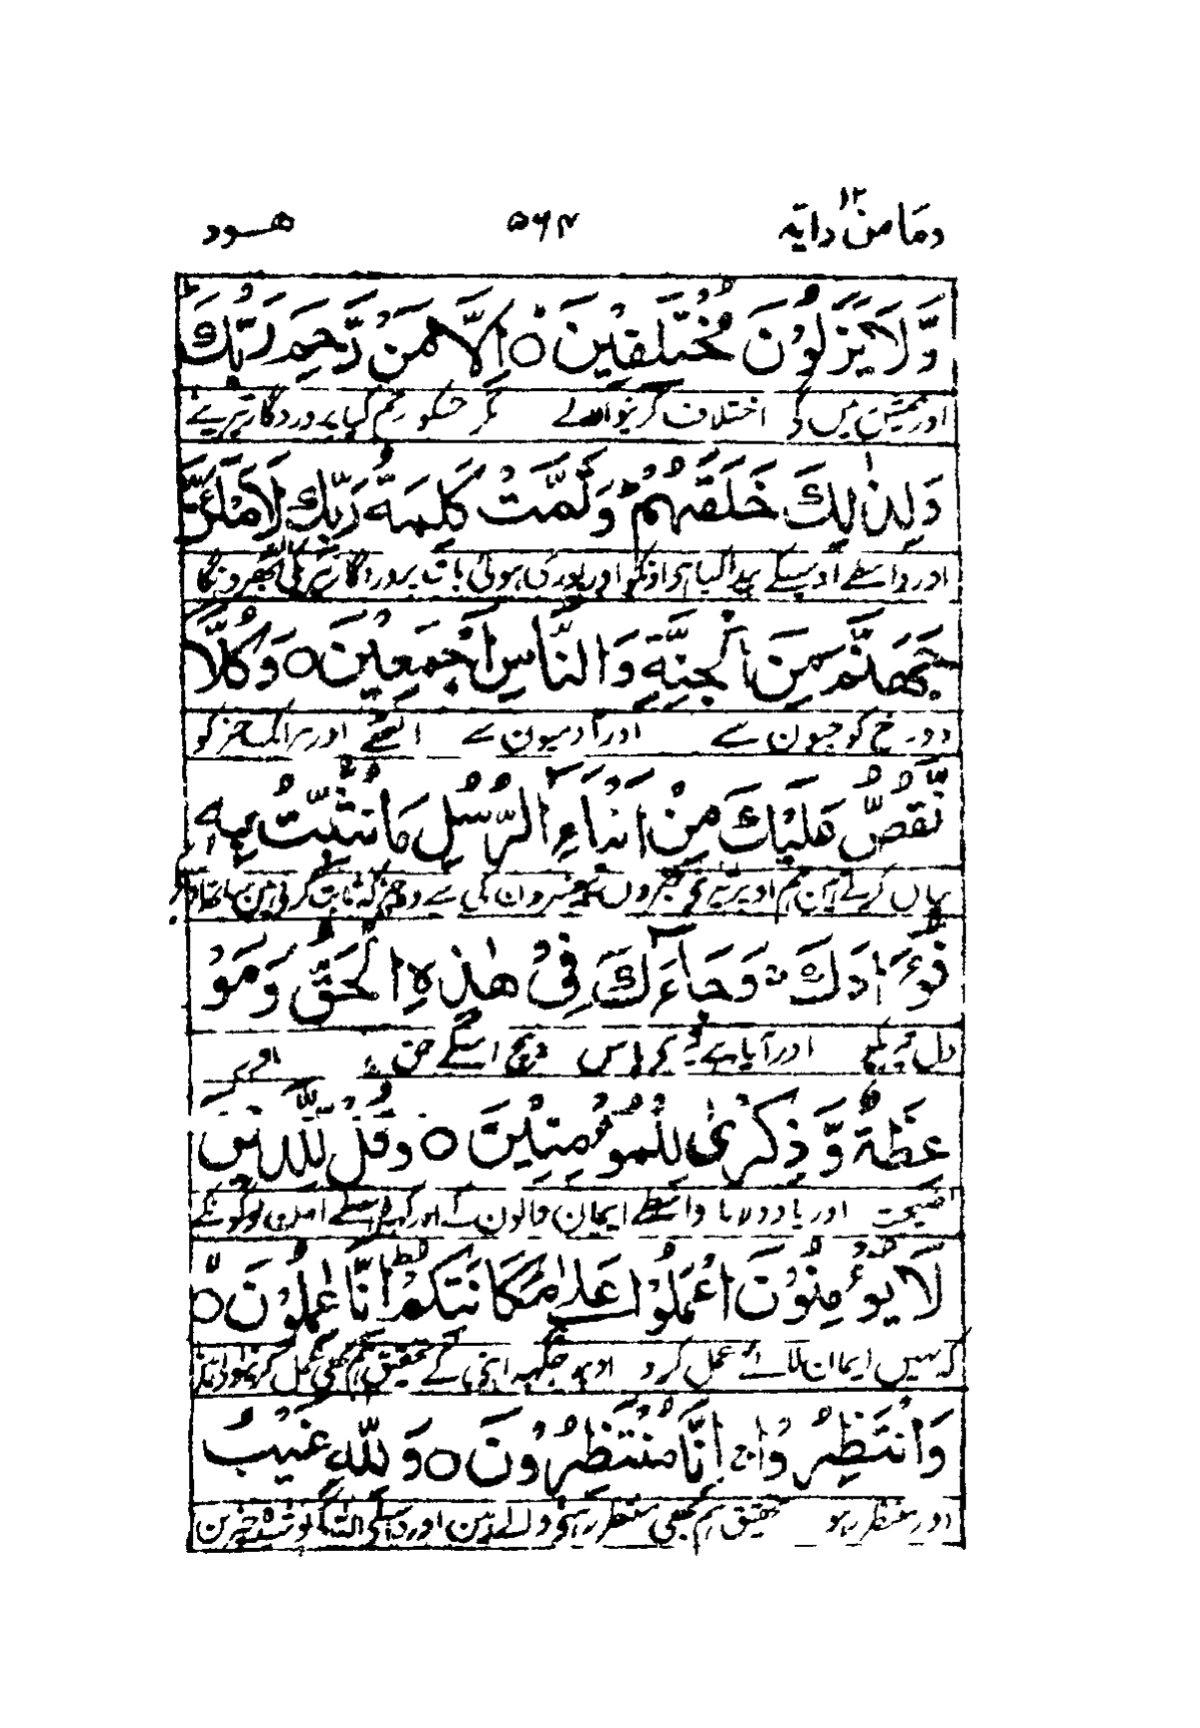 ومَا من دابّة ۱۲ ۵۶۴ هود
وَّلَا يَزَالُوْنَ مُخْتَلِفِيْنَ ۝ اِلَّا مَنْ رَّحِمَ رَبُّكَ
اور ہمیشہ رہیں گے اختلاف کرنیوالے مگر جسکو رحم کیا پروردگار تیرے نے
وَلِذٰلِكَ خَلَقَهُمْ ؕ وَتَمَّتْ كَلِمَةُ رَبِّكَ لَاَمْلَـَٔنَّ
اور واسطے اوسیکے پیدا کیا ہے اونکو اور پوری ہوئی بات پروردگار تیرے کی البتہ بھرونگا
جَهَنَّمَ مِنَ الْجِنَّةِ وَالنَّاسِ اَجْمَعِيْنَ ۝ وَكُلًّا
دوزخ کو جنون سے اور آدمیون سے اکٹھے اور ہر ایک چیز کو
نَّقُصُّ عَلَيْكَ مِنْ اَنْۢبَآءِ الرُّسُلِ مَا نُثَبِّتُ بِهٖ
بیان کرتے ہین ہم اوپر تیرے خبروں پیغمبرون کی سے وہ چیز کہ ثابت کرتے ہین ساتھ اوسکے
فُؤَادَكَ ۚ وَجَآءَكَ فِىْ هٰذِهِ الْحَقُّ وَمَوْ
دل تیرے کو اور آیا ہے تیرے پاس بیچ اسکے حق اور
عِظَةٌ وَّذِكْرٰى لِلْمُؤْمِنِيْنَ ۝ وَقُلْ لِّلَّذِيْنَ
نصیحت اور یاد دلانا واسطے ایمان والون کے اور کہہ واسطے اون لوگونکے
لَا يُؤْمِنُوْنَ اعْمَلُوْا عَلٰى مَكَانَتِكُمْ ؕ اِنَّا عٰمِلُوْنَ ۝
کہ نہیں ایمان لاتے عمل کرو اوپر جگہہ اپنی کے تحقیق ہم بھی عمل کرنیوالے ہین
وَانْتَظِرُوْا ۚ اِنَّا مُنْتَظِرُوْنَ ۝ وَلِلّٰهِ غَيْبُ
اور منتظر رہو تحقیق ہم بھی منتظر رہنے والے ہین اور واسطے اللہ کے پوشیدہ چیزین